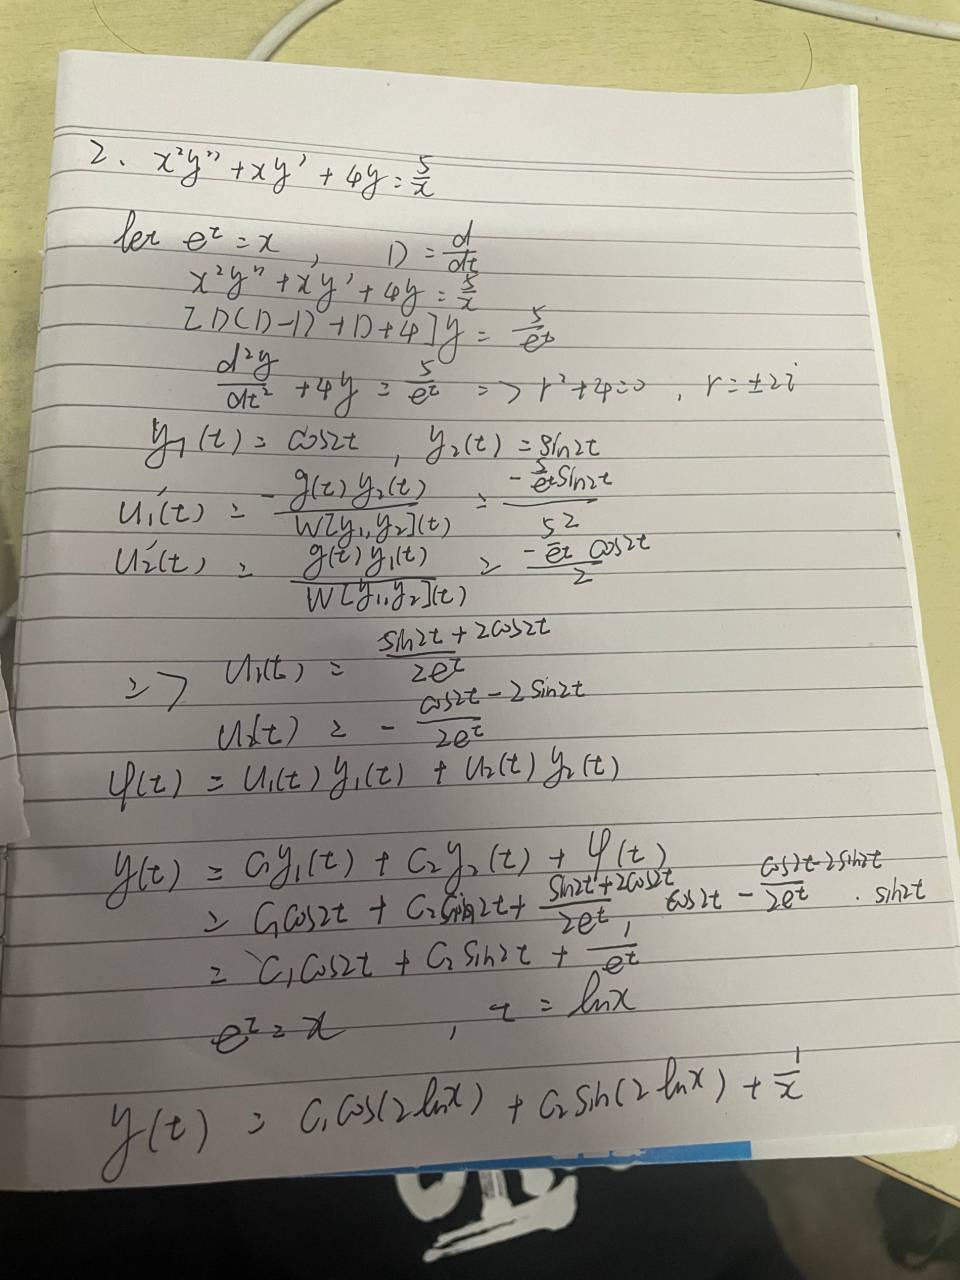 2、x²y'' + xy' + 4y = 5/x
let e^t = x , D = d/dt
x²y'' + xy' + 4y = 5/x
[D(D-1) + D + 4]y = 5/e^t
d²y/dt² + 4y = 5/e^t => r² + 4 = 0 , r = ±2i
y₁(t) = cos2t , y₂(t) = sin2t
u₁'(t) = - g(t)y₂(t)/W[y₁,y₂](t) = -5/e^t sin2t / 2
u₂'(t) = g(t)y₁(t)/W[y₁,y₂](t) = -5/e^t cos2t / 2
=> u₁(t) = (sin2t + 2cos2t)/2e^t
u₂(t) = - (cos2t - 2sin2t)/2e^t
φ(t) = u₁(t)y₁(t) + u₂(t)y₂(t)
y(t) = c₁y₁(t) + c₂y₂(t) + φ(t)
= c₁cos2t + c₂sin2t + (sin2t + 2cos2t)/2e^t , cos2t - (cos2t - 2sin2t)/2e^t · sin2t
= c₁cos2t + c₂sin2t + 1/e^t
e^t = x , t = lnx
y(t) = c₁cos(2lnx) + c₂sin(2lnx) + 1/x